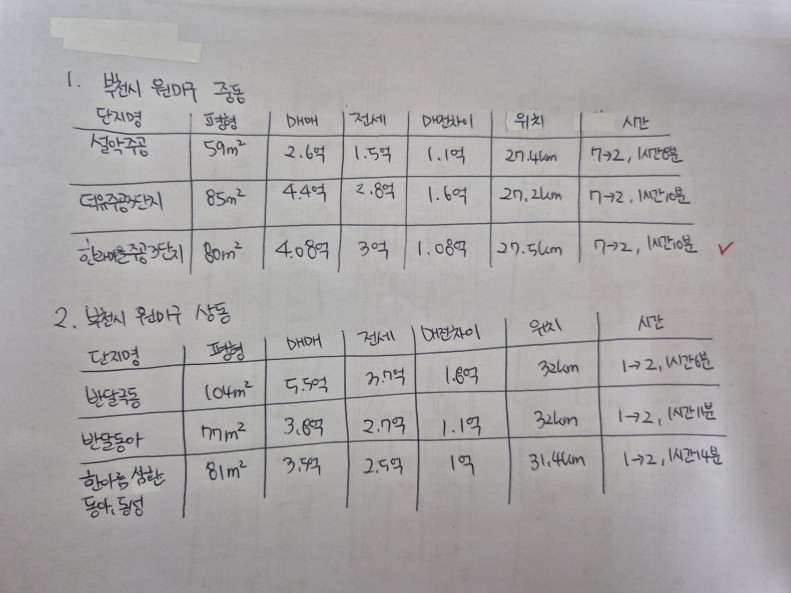 1. 부천시 원미구 중동
단지명 평형 매매 전세 매전차이 위치 시간
설악주공 59m² 2.6억 1.5억 1.1억 27.4km 7→2, 1시간8분
덕유주공3단지 85m² 4.4억 2.8억 1.6억 27.2km 7→2, 1시간10분
한라마을주공3단지 80m² 4.08억 3억 1.08억 27.5km 7→2, 1시간10분 ✓
2. 부천시 원미구 상동
단지명 평형 매매 전세 매전차이 위치 시간
반달극동 104m² 5.5억 3.7억 1.8억 32km 1→2, 1시간6분
반달동아 77m² 3.8억 2.7억 1.1억 32km 1→2, 1시간11분
한아름 삼환, 81m² 3.5억 2.5억 1억 31.4km 1→2, 1시간14분
동아, 동성